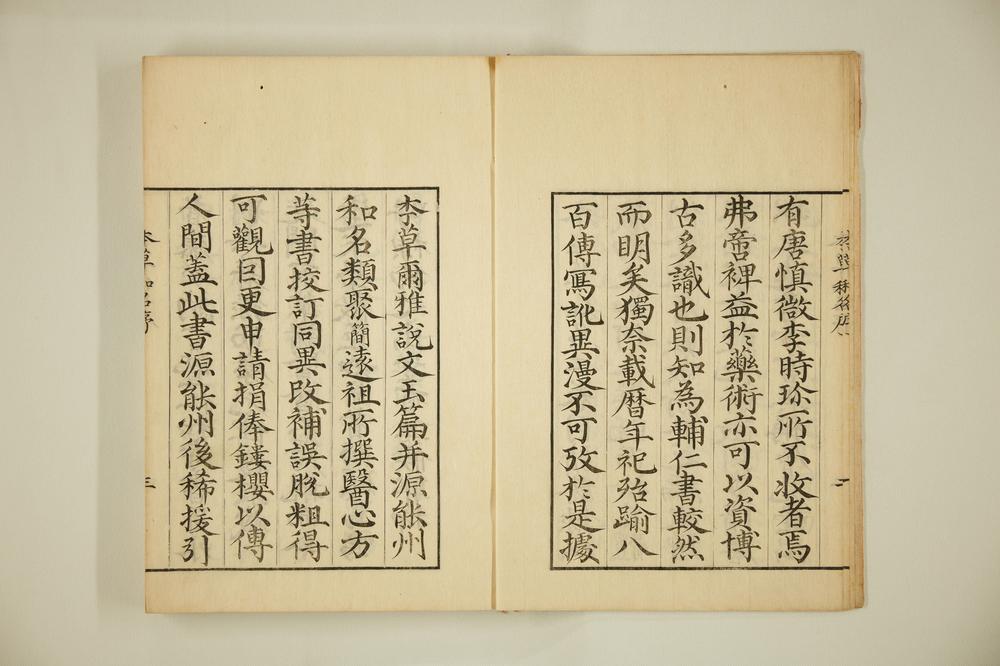 有唐慎微李時珎所不收者焉
弗啻裨益於藥術亦可以資博
古多識也則知為輔仁書較然
而明矣獨奈載曆年祀殆踰八
百傳寫訛異漫不可攷於是據
本草爾雅說文玉篇并源能州
和名類聚簡遠祖所撰醫心方
等書挍訂同異改補誤脫粗得
可觀因更申請捐俸鏤櫻以傳
人間蓋此書源能州後稀援引
本草和名序
三